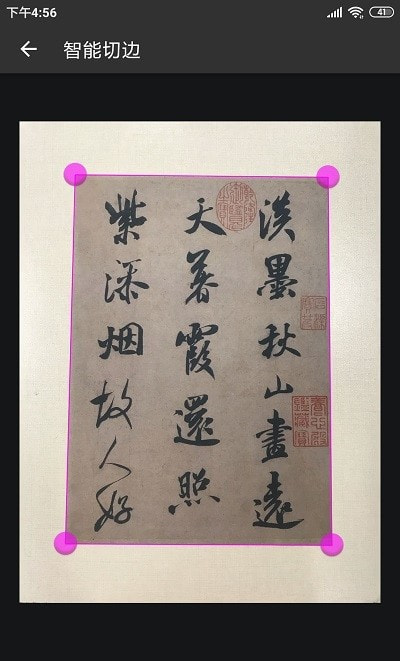 下午4:56 41
智能切边
淡墨秋山畫遠
天暮霞還照
紫添烟故人好